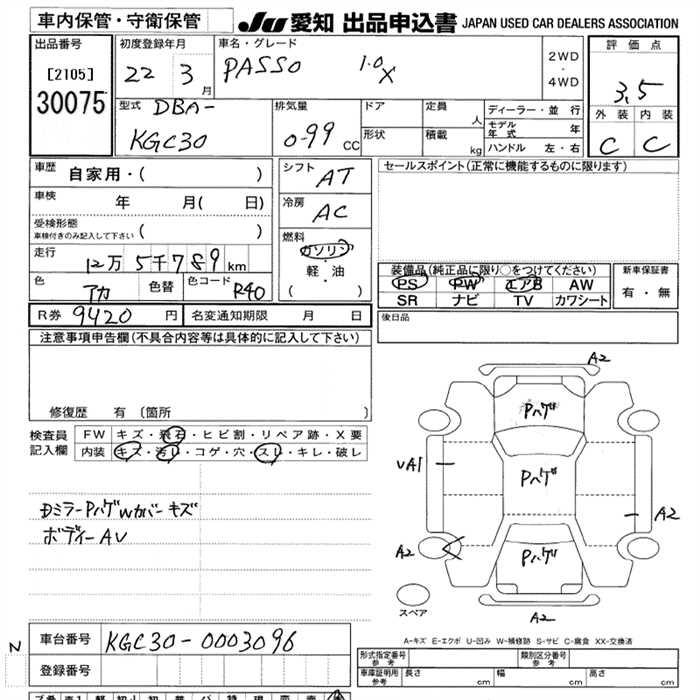 車内保管・守衛保管
JU 愛知 出品申込書 JAPAN USED CAR DEALERS ASSOCIATION
出品番号
[2105]
30075
初度登録年月
22 3月
車名・グレード
PASSO 1.0 X
2WD
・
4WD
評価点
3.5
外装 内装
C C
型式 DBA-
KGC30
排気量
0.99 CC
ドア
形状
定員 人
積載 kg
ディーラー・並行
モデル年式 年
ハンドル 左・右
車歴 自家用・( )
車検 年 月( 日)
受検形態
車検付きのみ記入して下さい ( )
走行 12万5千789km
色 アカ 色替 色コード R40
シフト AT
冷房 AC
燃料
ガソリン
・
軽・油
( )
セールスポイント(正常に機能するものに限ります)
装備品(純正品に限り○をつけてください)
PS PW エアB AW
SR ナビ TV カワシート
新車保証書
有・無
R券 9420円 名変通知期限 月 日
後日品
注意事項申告欄(不具合内容等は具体的に記入して下さい)
修復歴 有 〔箇所 〕
検査員
記入欄
FW キズ・飛石・ヒビ割・リペア跡・X要
内装 キズ・汚レ・コゲ・穴・スレ・キレ・破レ
DミラーPハゲWカバーキズ
ボディーAU
A2
Pハゲ
UA1
Pハゲ
A2
A2
Pハゲ
スペア
A2
A-キズ E-エクボ U-凹み W-補修跡 S-サビ C-腐食 XX-交換済
N
車台番号 KGC30-0003096
登録番号
形式指定番号
参考
類別区分番号
参考
車庫証明用
参考
長さ cm 幅 cm 高さ cm